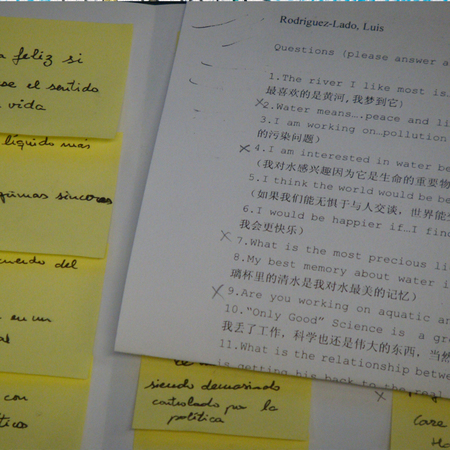 feliz si
el sentido
vida
líquido más
lágrimas sinceros
del
en un
con
siendo demasiado
controlado por la
política
Care
Rodriguez-Lado, Luis
Questions (please answer a
1.The river I like most is…
最喜欢的是黄河,我梦到它)
2.Water means….peace and li
3.I am working on…pollution
的污染问题)
4.I am interested in water be
(我对水感兴趣因为它是生命的重要物
5.I think the world would be be
(如果我们能无惧于与人交谈，世界能
6.I would be happier if…I fin
我会更快乐)
7.What is the most precious li
8.My best memory about water i
璃杯里的清水是我对水最美的记忆)
9.Are you working on aquatic an
10."Only Good" Science is a gr
我丢了工作，科学也还是伟大的东西，当然
11.What is the relationship betwe
is getting his back to the real